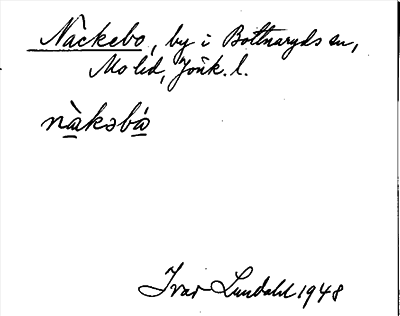 Näckebo, by i Bottnaryds sn,
Mo hd, Jönk. l.
nàkəbó
Ivar Lundahl 1948